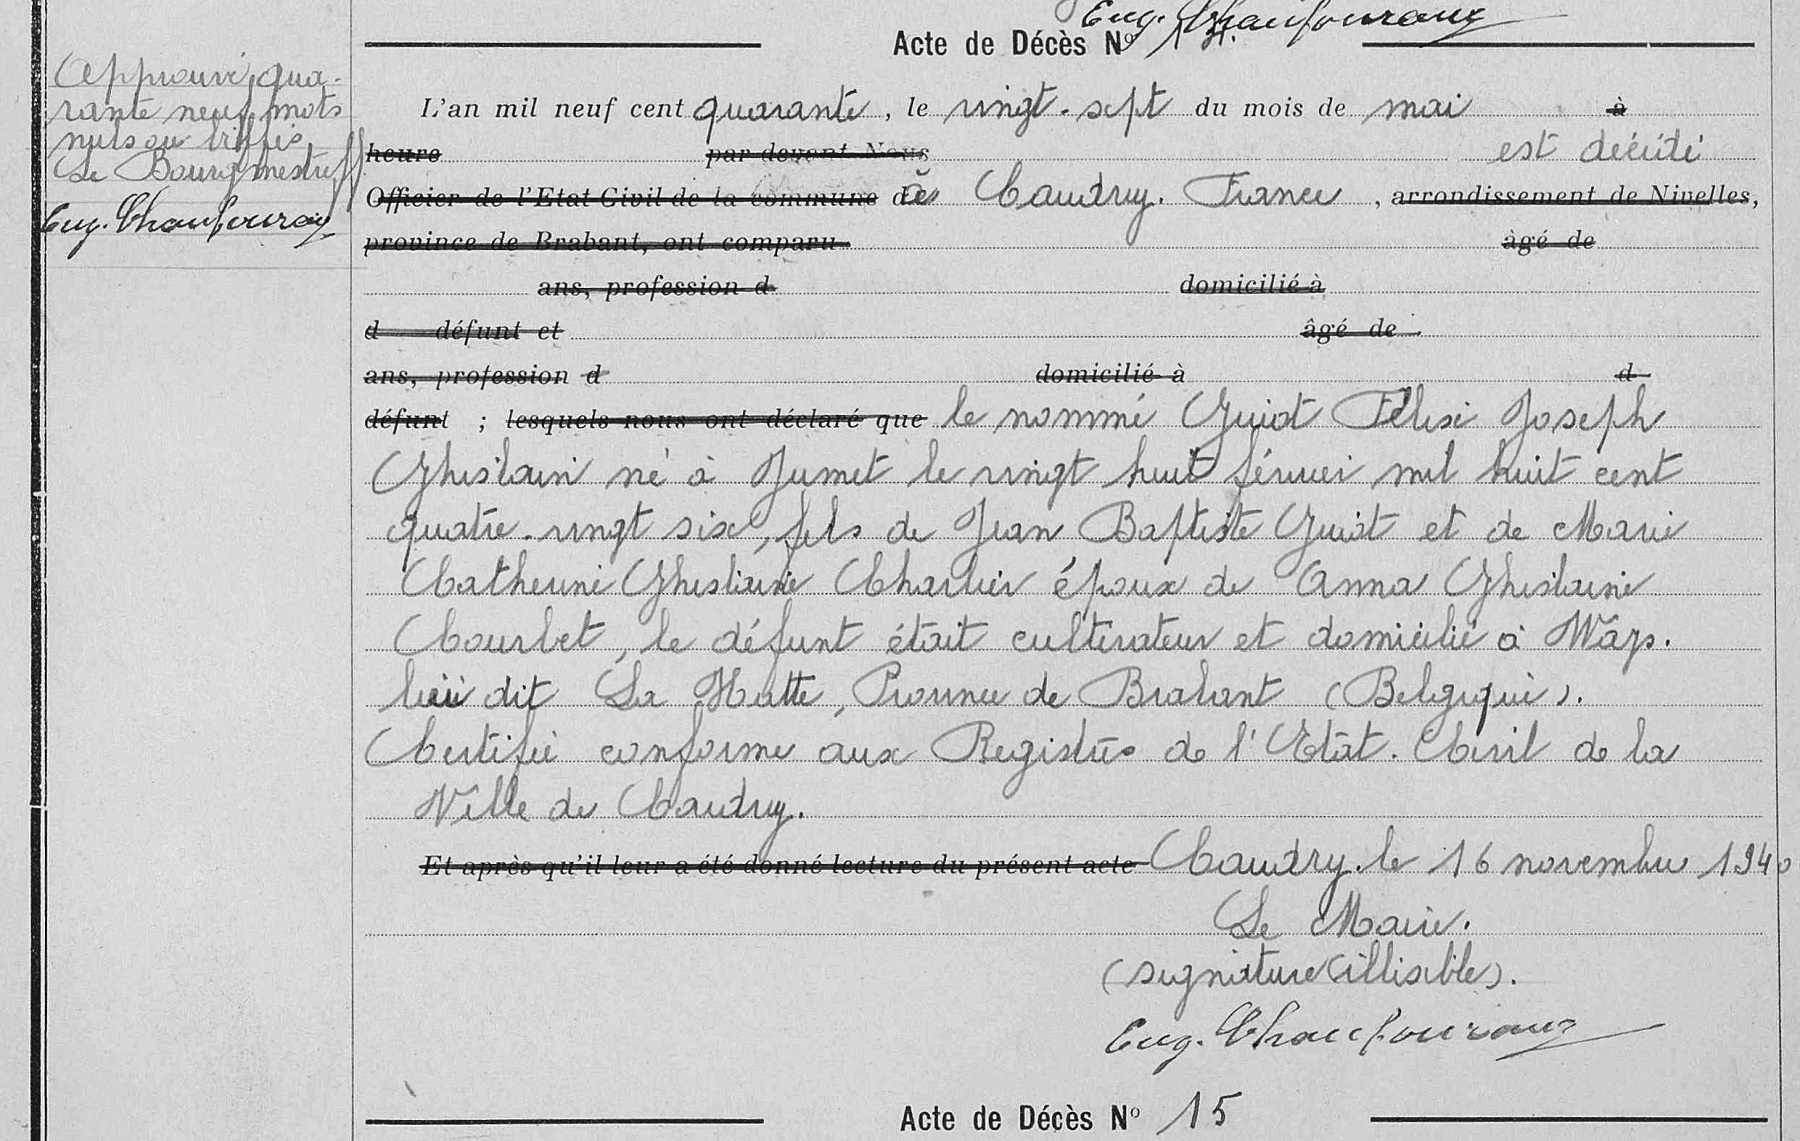 Eug. Chaufouraux
Acte de Décès Nº 14.
Approuvé qua-
rante neuf mots
nuls ou biffés
Le Bourgmestre ff
Eug. Chaufouraux
L'an mil neuf cent quarante, le vingt-sept du mois de mai à
heure par devant Nous est décédé
Officier de l'Etat Civil de la commune de à Caudry. France, arrondissement de Nivelles,
province de Brabant, ont comparu âgé de
ans, profession d domicilié à
d défunt et âgé de
ans, profession d domicilié à d
défunt ; lesquels nous ont déclaré que le nommé Guiot Félix Joseph
Ghislain né à Jumet le vingt huit février mil huit cent
quatre-vingt six, fils de Jean Baptiste Guiot et de Marie
Catherine Ghislaine Charlier époux de Anna Ghislaine
Courbet, le défunt était cultivateur et domicilié à Ways.
lieu dit La Hutte, Province de Brabant (Belgique).
Certifié conforme aux Registres de l'Etat-Civil de la
Ville de Caudry.
Et après qu'il leur a été donné lecture du présent acte Caudry. le 16 novembre 1940
Le Maire.
(signature illisible).
Eug. Chaufouraux
Acte de Décès Nº 15